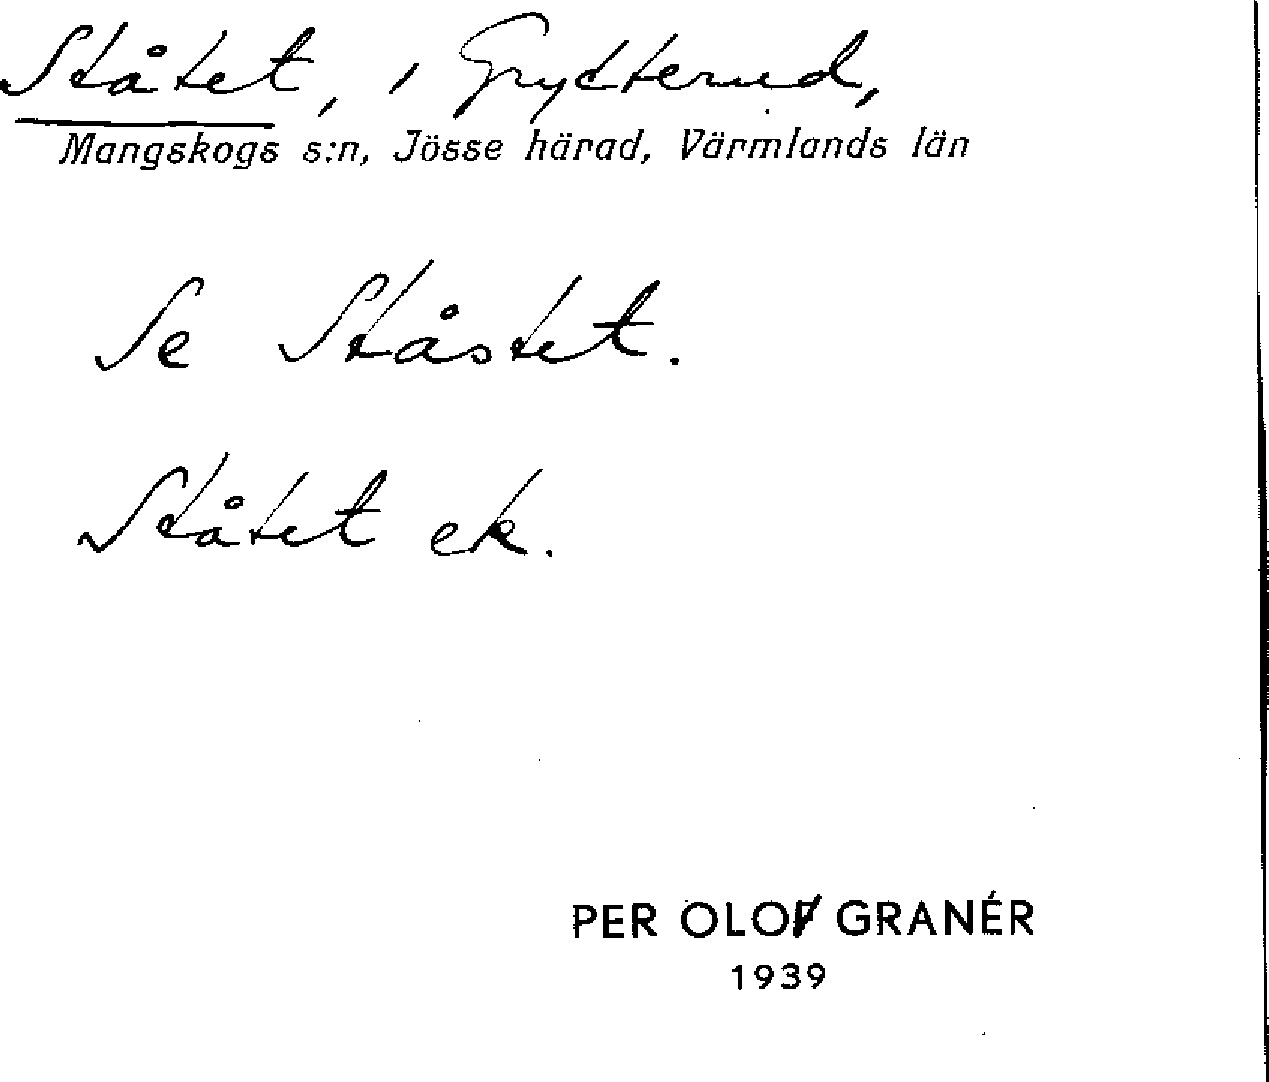 Ståtet, i Grytterud,
Mangskogs s:n, Jösse härad, Värmlands län
Se Ståstet.
Ståtet ek.
PER OLOF GRANÉR
1939